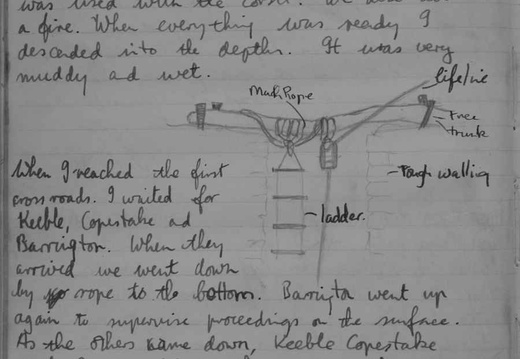 was used with the
a fire. When everything was ready I
descended into the depths. It was very
muddy ad wet.
lifeline
Tree
trunk
Rough walling
ladder.
When I reached the first
cross roads. I waited for
Keeble, Copestake ad
Barrington. When they
arrived we went down
by rope to the bottom. Barrington went up
again to supervise proceedings on the surface.
As the others came down, Keeble Copestake